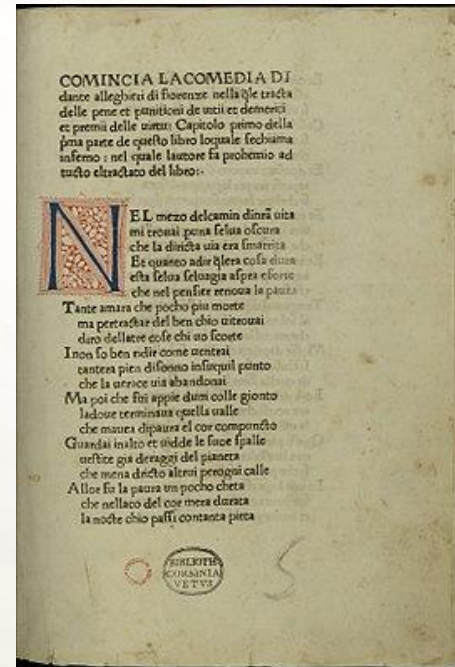 COMINCIA LACOMEDIA DI
dante alleghieri di fiorenze nella q̃le tracta
delle pene et punitioni de uitii et demeriti
et premii delle uirtu: Capitolo primo della
p̃ma parte de questo libro loquale sechiama
inferno : nel quale lautore fa prohemio ad
tucto eltractato del libro:·
NEL mezo delcamin dinr̃a uita
mi trouai puna selua oscura
che la diricta uia era smarrita
Et quanto adir q̃lera cosa dura
esta selua seluagia aspra eforte
che nel pensier renoua la paura
Tante amara che pocho piu morte
ma pertractar del ben chio uitrouai
diro dellaltre cose chi uo scorte
I non so ben ridir come uentrai
tantera pien disonno insuquil punto
che la uerace uia abandonai
Ma poi che fui appie dum colle gionto
ladoue terminaua quella ualle
che mauea dipaura el cor compuncto
Guardai inalto et uidde le suoe spalle
uestite gia deraggi del pianeta
che mena dricto altrui perogni calle
Allor fu la paura un pocho cheta
che nellaco del cor mera durata
la nocte chio passi contanta pieta
BIBLIOTH
CORSINIA
VETVS